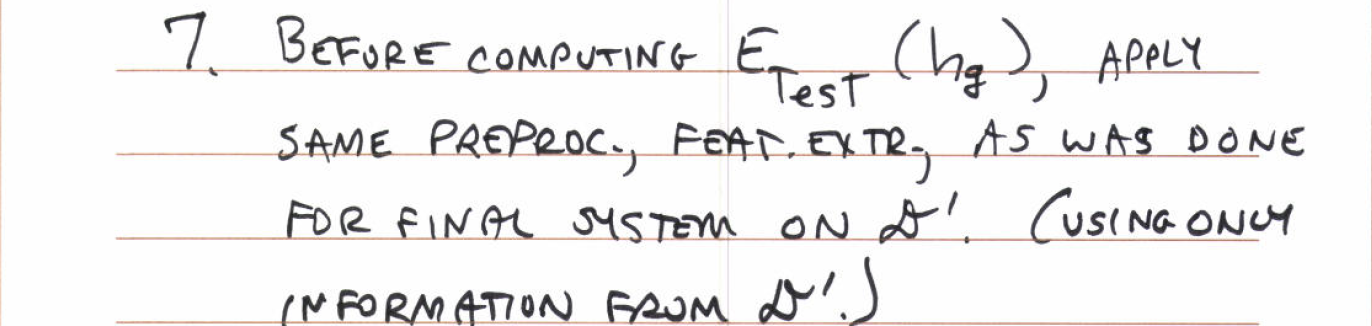 7. BEFORE COMPUTING E_Test (h_g), APPLY
SAME PREPROC., FEAT. EXTR., AS WAS DONE
FOR FINAL SYSTEM ON 𝒟'. (USING ONLY
INFORMATION FROM 𝒟'.)